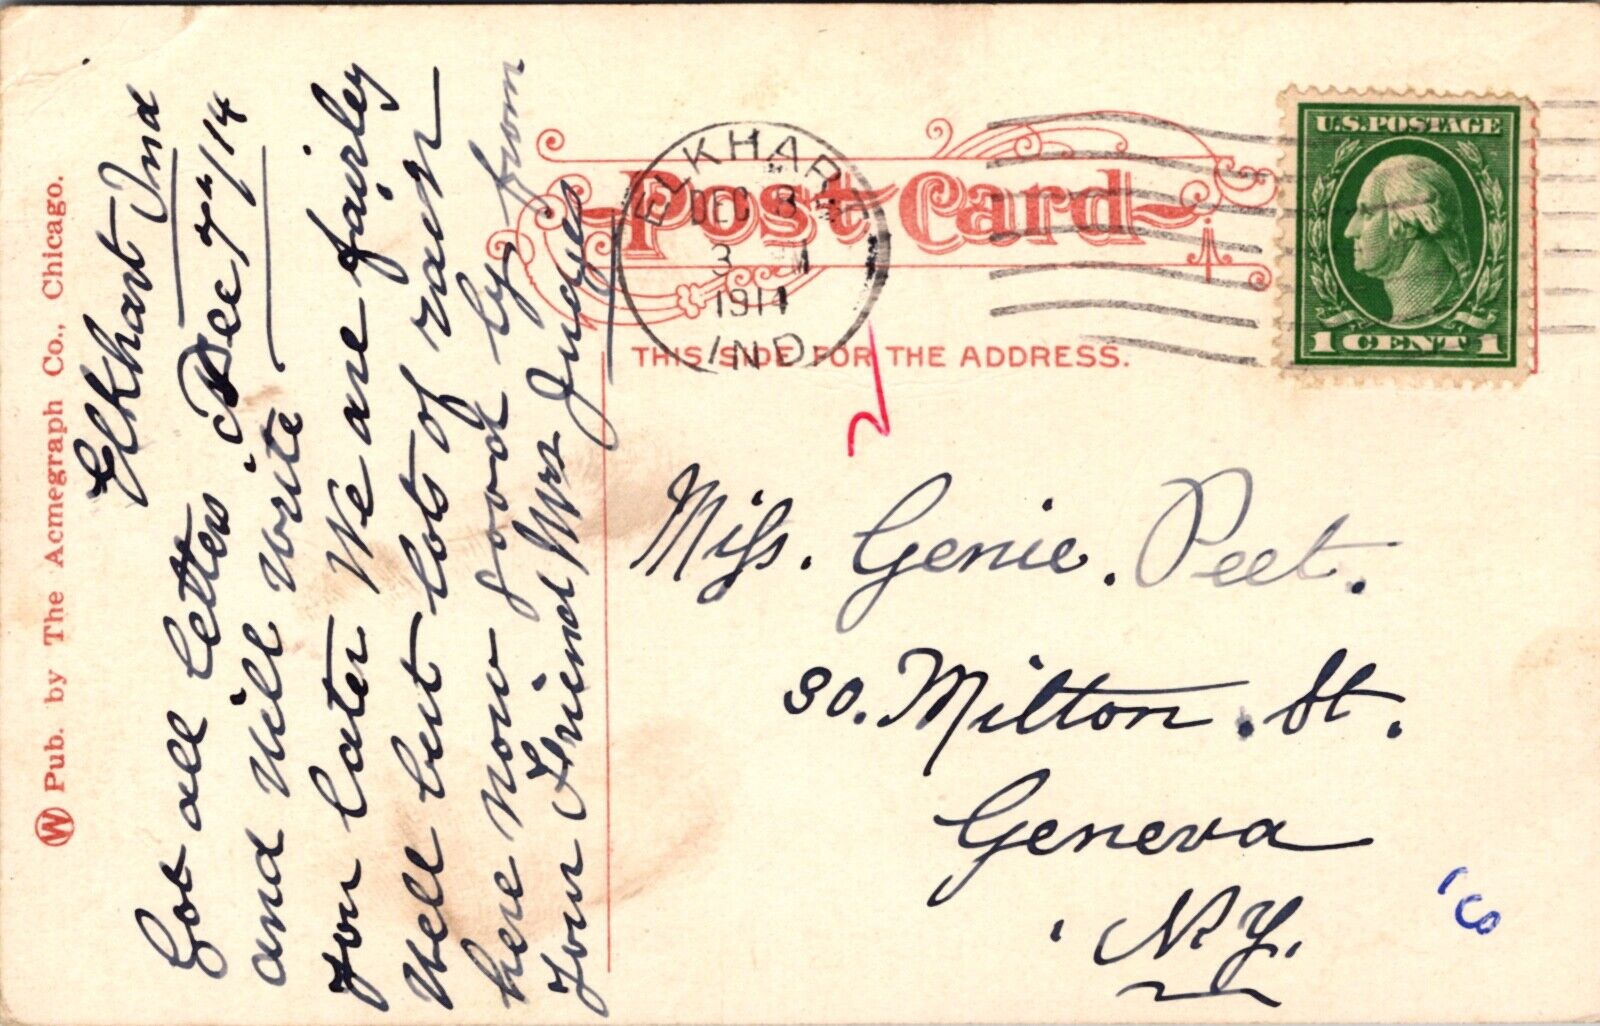 Elkhart Ind
Dec 7th/14
Got all letters
and will write
you later We are fairley
well but lots of rain
here now good by from
your Friend Mrs Judges
W Pub. by The Acmegraph Co., Chicago.
Post Card
THIS SIDE FOR THE ADDRESS.
ELKHART
DEC 8
3 M
1914
IND
U.S. POSTAGE
1 CENT 1
Miss. Genie. Peet.
30. Milton. St.
Geneva
N.Y.